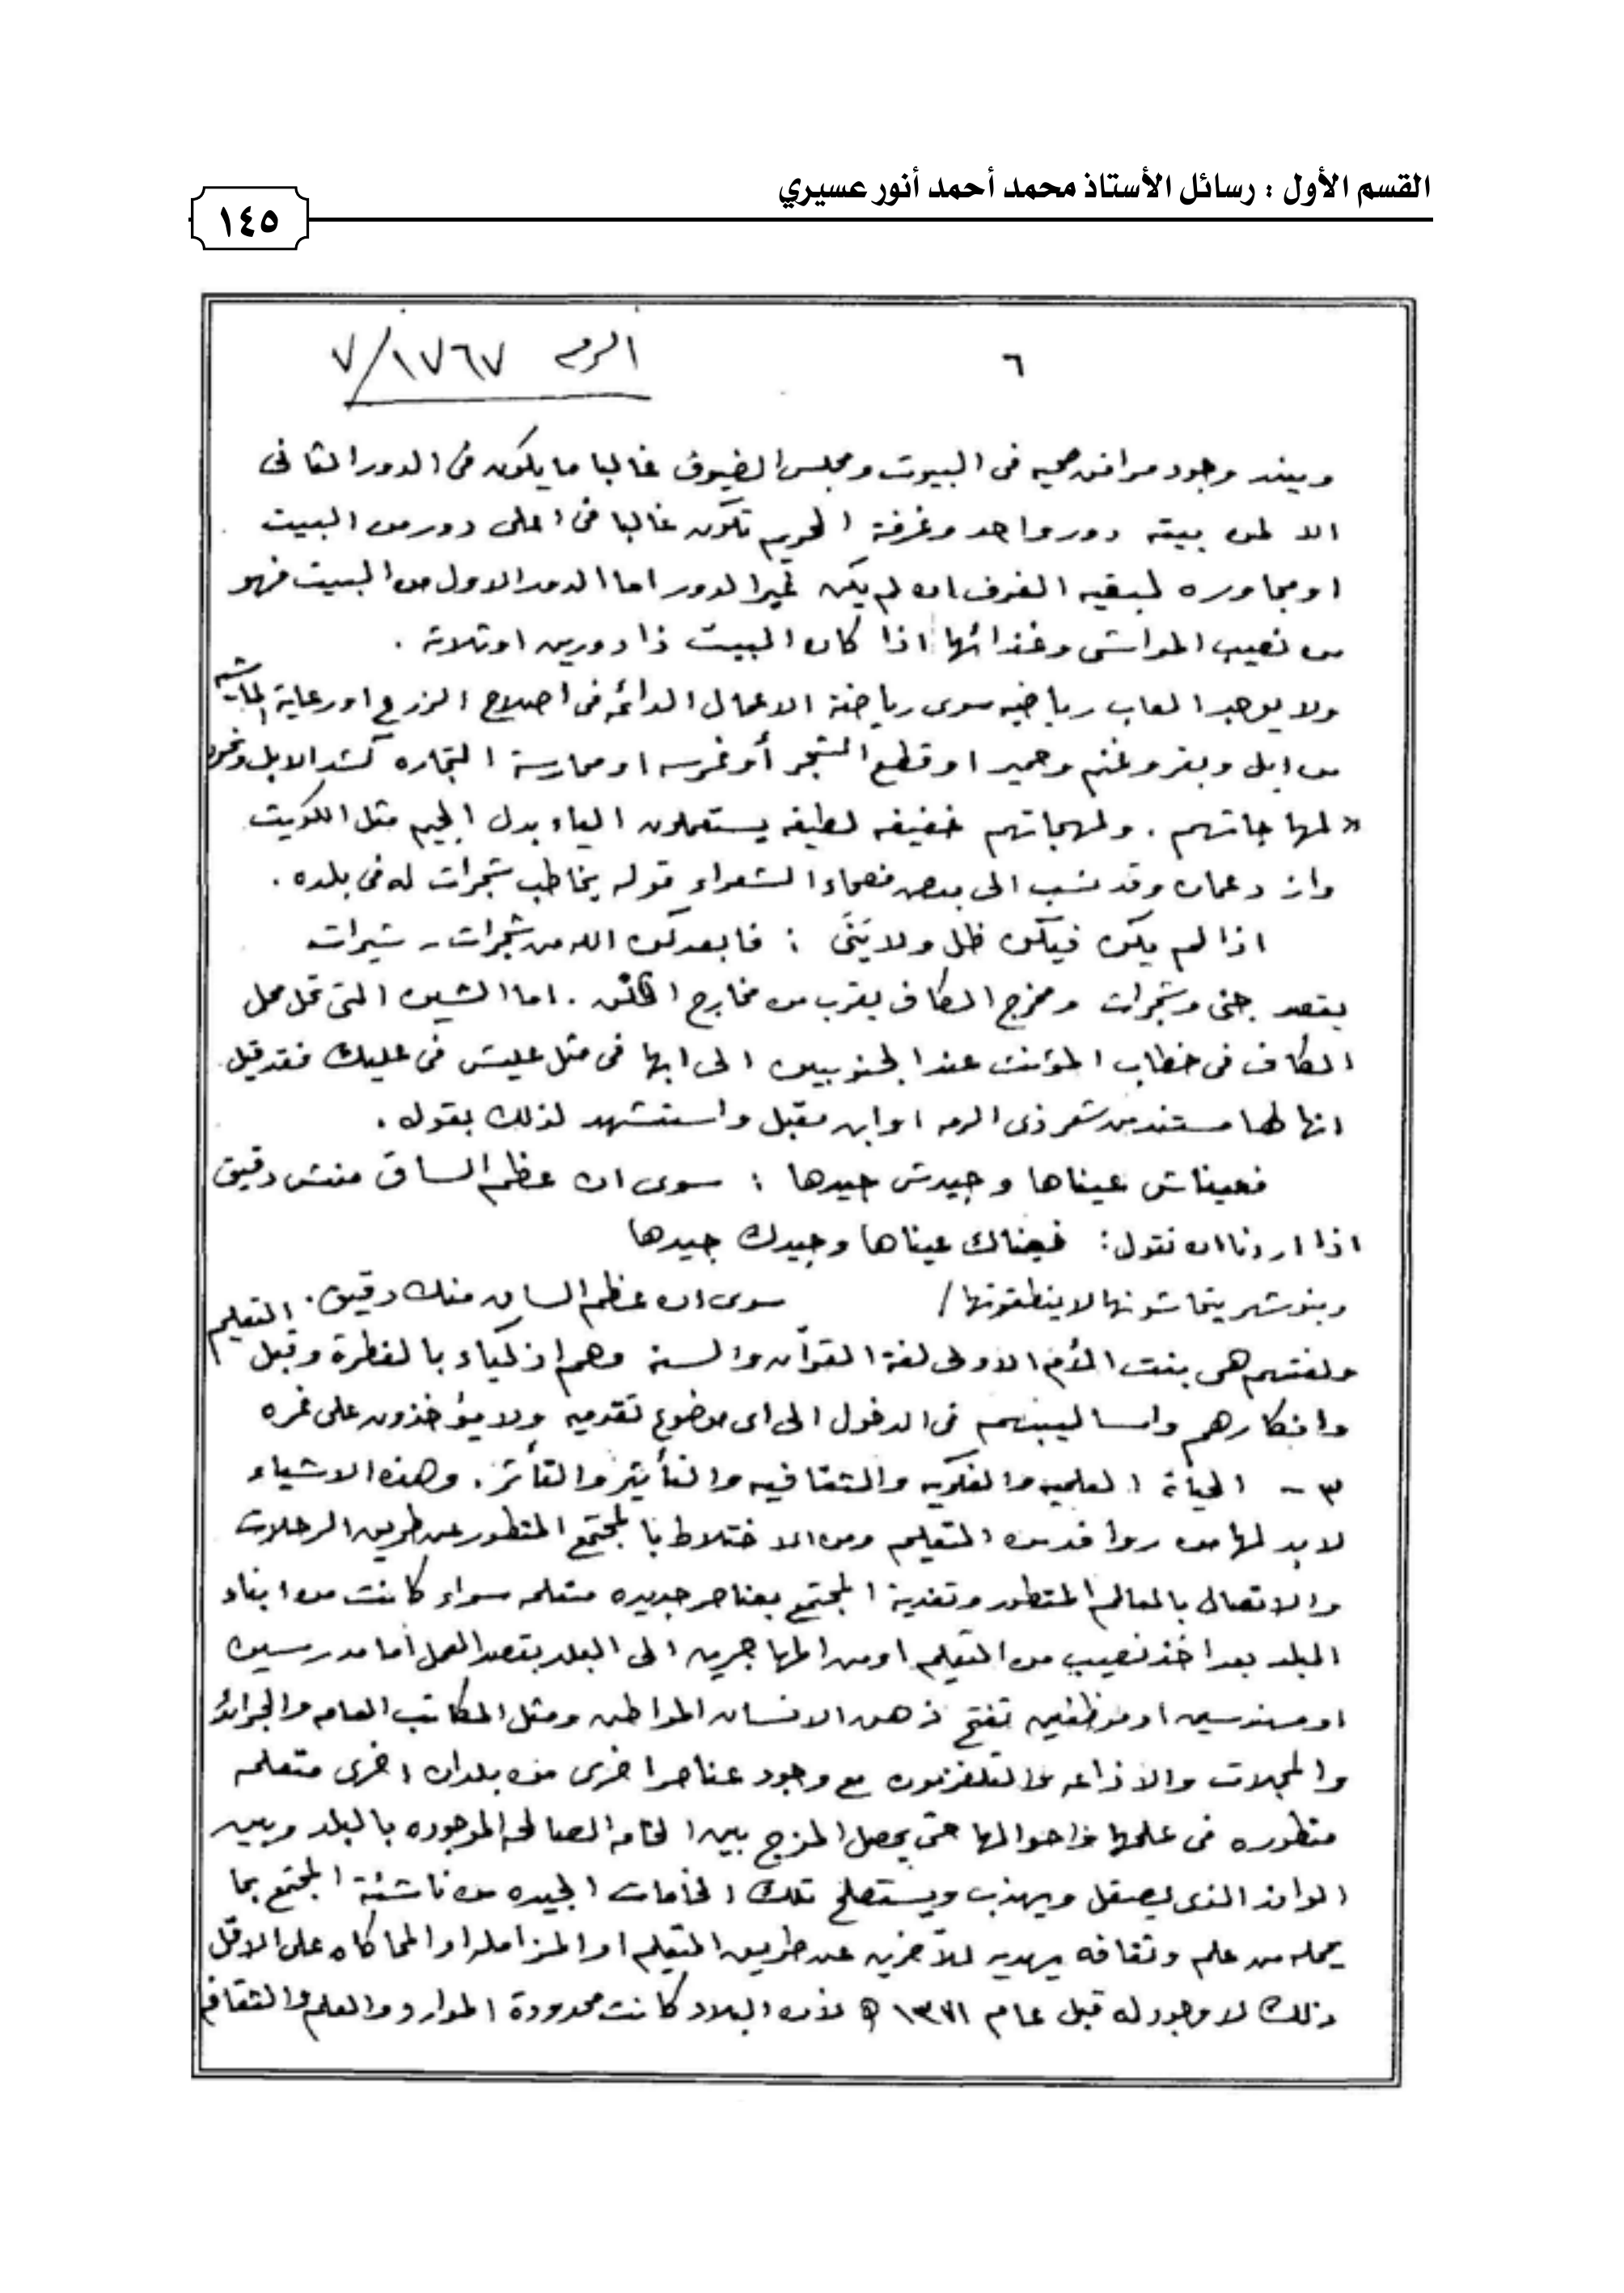 القسم الأول : رسائل الأستاذ محمد أحمد أنور عسيري
١٤٥
٦
الرمم ١٧٦٧/٧
ويند وجود مرافق صحيه فى البيوت ومجلس الضيوف غالبا ما يكون فى الدور الثانى
الا لمن بيته دور واحد وغرفة الحريم تكون غالبا فى اعلى دور من البيت
او مجاوره لبقيه الغرف ان لم يكن غير الدور اما الدور الاول من البيت فهو
من نصيب المواشى وغذائها اذا كان البيت ذا دورين او ثلاثة .
ولا يوجد العاب رياضيه سوى رياضة الاعمال الدائمه فى اصلاح الزرع او رعاية الماشيه
من ابل وبقر وغنم وحمير او قطع الشجر أو غرسه او ممارسة التجاره كشد الابل ونحوه
« لمهاجاتهم . ولهجاتهم خفيفه لطيفه يستعملون الياء بدل الجيم مثل الكويت
وازد عمان وقد نسب الى بعض فصحاء الشعراء قوله يخاطب شجرات له فى بلده .
اذا لم يكن فيكن ظل ولا يَنَىً : فابعدكن الله من شجرات - شيرات
يقصد جنى وشجرات ومخرج الكاف يقرب من مخارج . اما الشين التى تحل محل
الكاف فى خطاب المؤنث عند الجنوبيين الى ابها فى مثل عليش فى عليك فقد قيل
انها لها مستند من شعر ذى الرمه او ابن مقبل واستشهد لذلك بقوله .
فعيناش عيناها وجيدش جيدها : سوى ان عظم الساق منش دقيق
اذا اردنا ان نقول : فعيناك عيناها وجيدك جيدها
وبنو شهر يتحاشونها لا ينطقونها / سوى ان عظم الساق منك دقيق .
ولغتهم هى بنت الأم الاولى لغة القرآن والسنة وهم اذكياء بالفطرة وقبل التعليم
وافكارهم واساليبهم فى الدخول الى اى موضوع تقدميه ولا يؤخذون على غره
٣ - الحياة العلميه والفكريه والثقافيه والتأثير والتأثر . وهذه الاشياء
لا بد لها من روافد من التعليم ومن الاختلاط بالمجتمع المتطور عن طريق الرحلات
والاتصال بالعالم المتطور وتغذية المجتمع بعناصر جديده متعلمه سواء كانت من ابناء
البلد بعد اخذ نصيب من التعليم او من المهاجرين الى البلد بقصد العمل اما مدرسين
او مهندسين او موظفين تفتح ذهن الانسان المواطن ومثل المكاتب العامه والجرائد
والمجلات والاذاعه والتلفزيون مع وجود عناصر اخرى من بلدان اخرى متعلمه
متطوره فى علمها واحوالها حتى يحصل المزج بين الخامه الصالحه الموجوده بالبلد وبين
الوافد الذى يصقل ويهذب ويستصلح تلك الخامات الجيده من ناشئة المجتمع بما
يحمله من علم وثقافه يهديه للآخرين عن طريق التعليم او المزامله او المحاكاه على الاقل
وذلك لا وجود له قبل عام ١٣٧١ ﻫ لأن البلاد كانت محدودة الموارد والعلم والثقافه